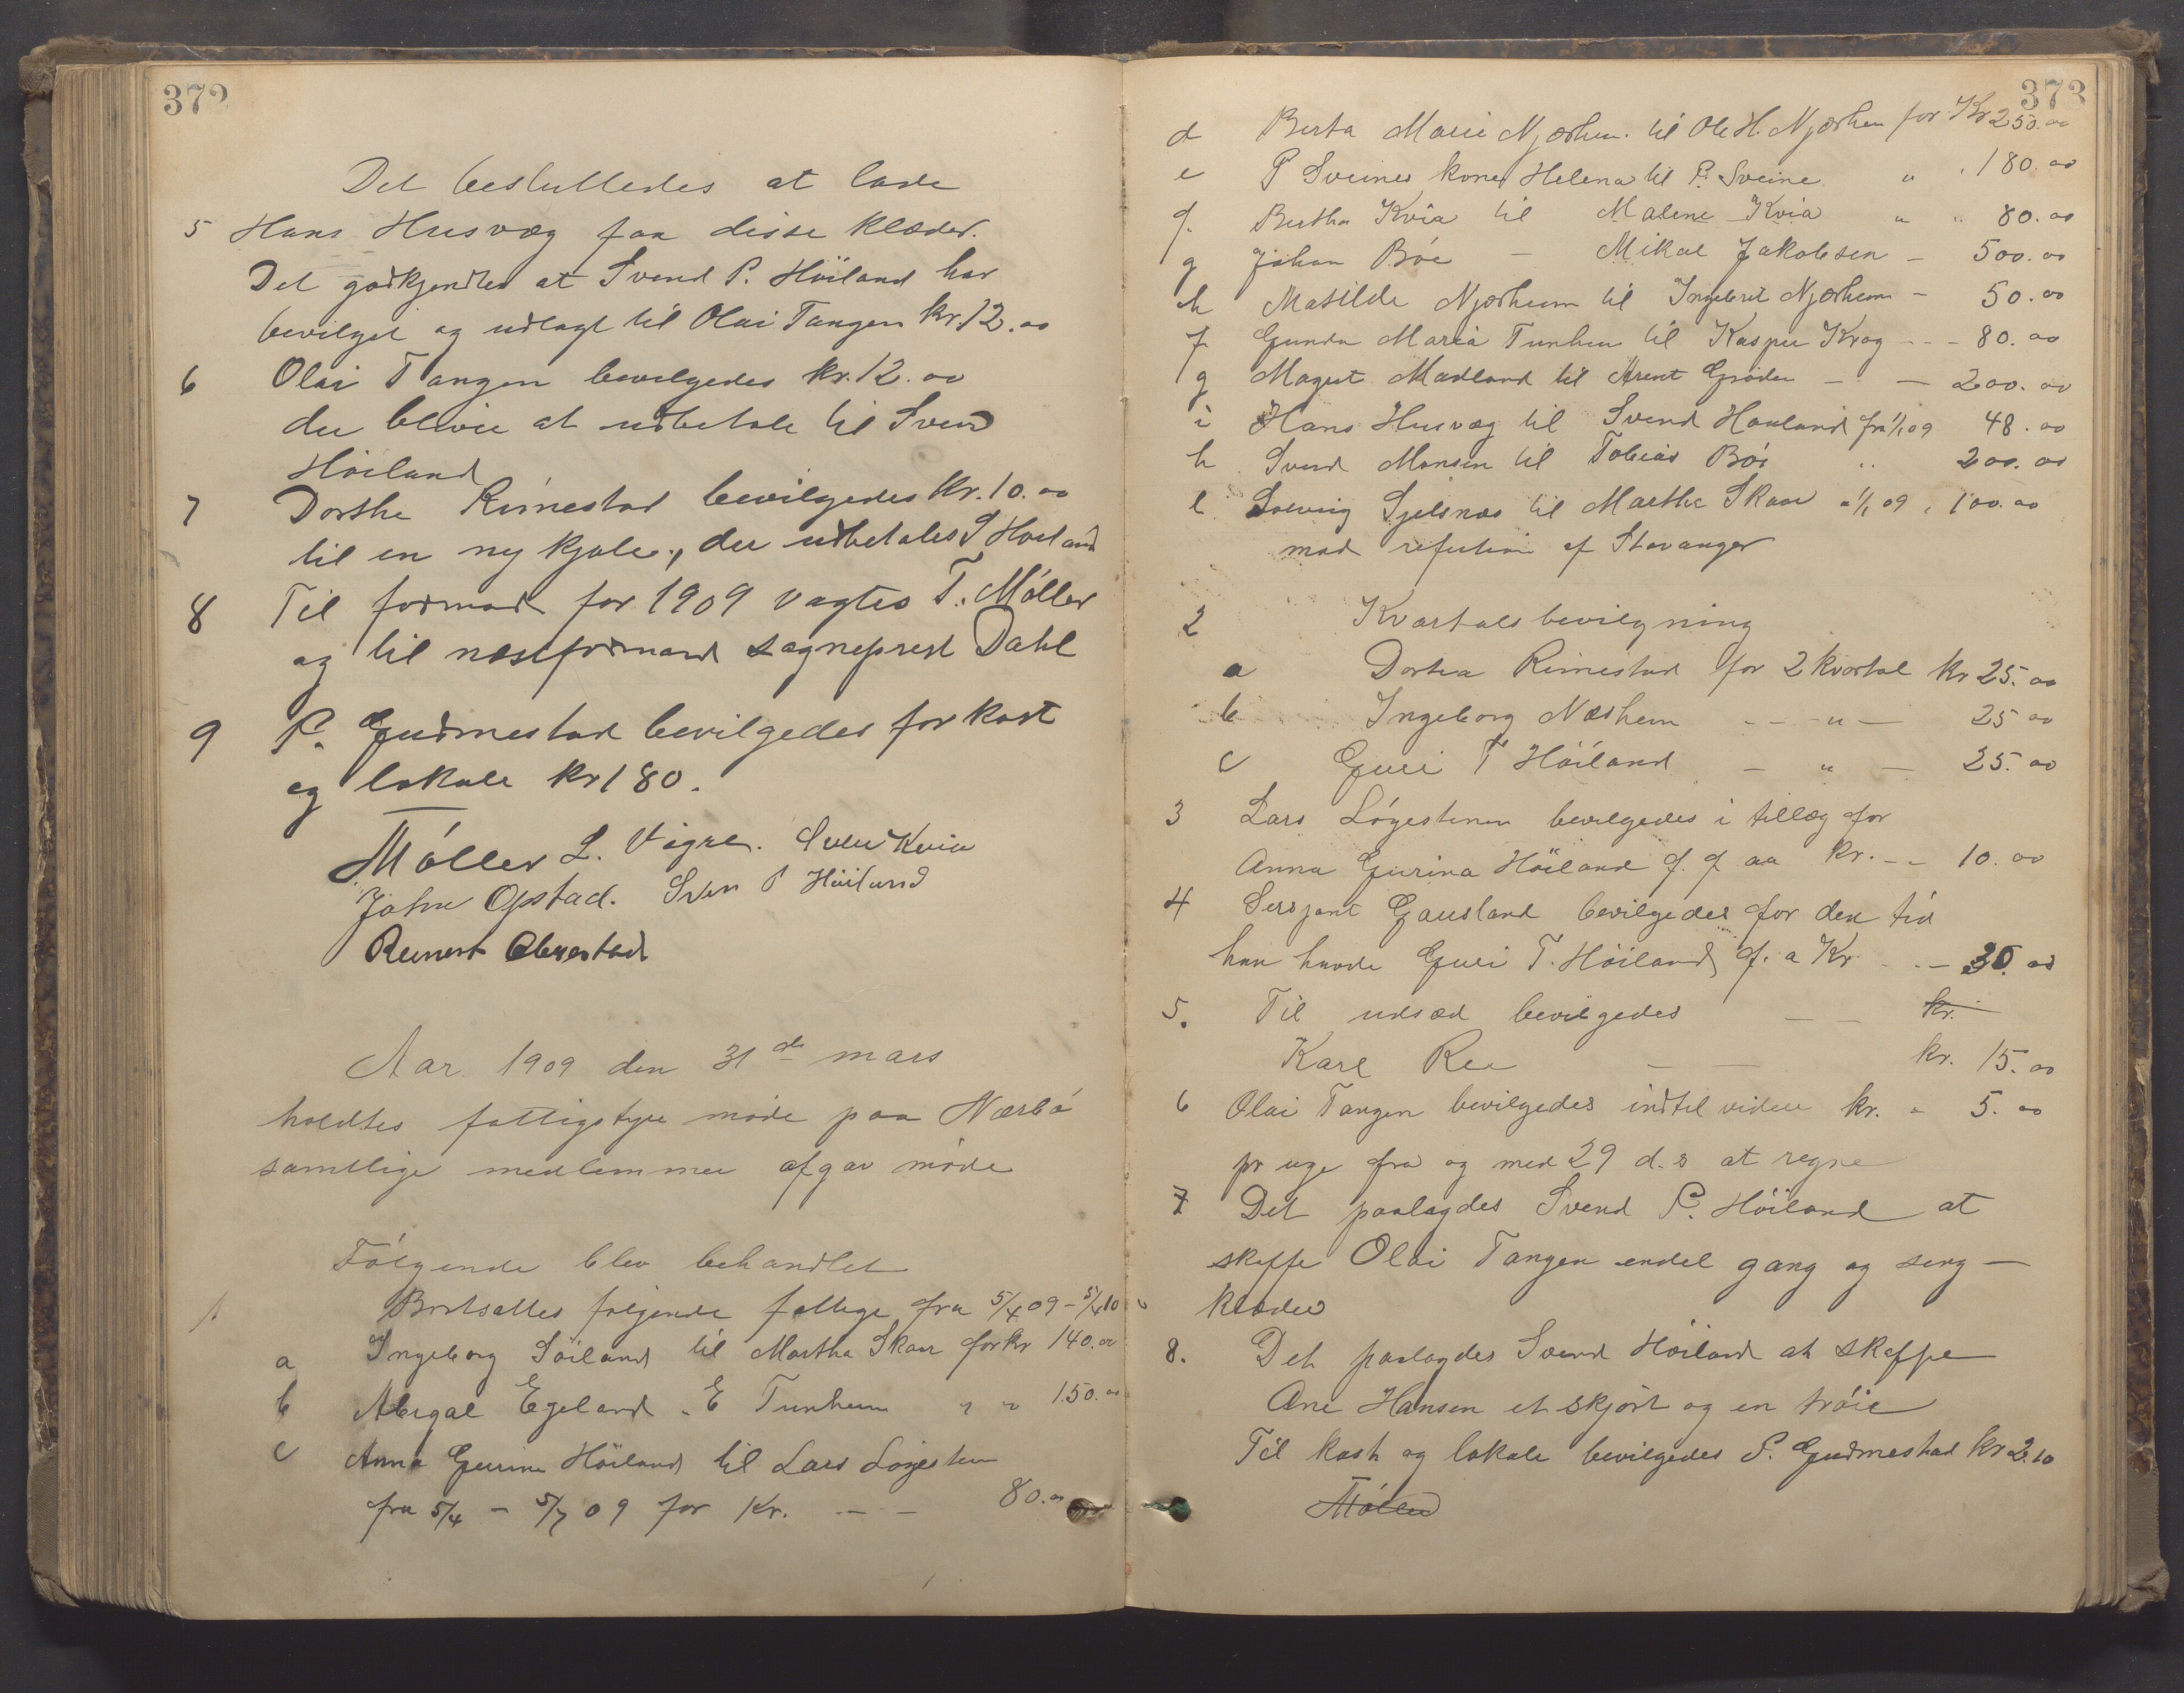 372
Det besluttedes at lade
5 Hans Husvæg faa disse klæder.
Det godkjendtes at Svend P. Höiland har
bevilget og udlagt til Olai Tangen kr. 12.00
6 Olai Tangen bevilgedes kr. 12.00
der blivir at udbetale til Svend
Höiland
7 Dorthe Rimestad bevilgedes kr. 10.00
til en ny kjole, der udbetales S Höiland
8 Til formand for 1909 vagtes T. Möller
og til næstformand sogneprest Dahl
9 P. Gudmestad bevilgedes for kost
og lokale kr 180.
TMöller L. Vigre. Svend Kvia
John Opstad. Sven P Höiland
Reinert Obrestad
Aar 1909 den 31 de mars
holdtes fattigstyre möde paa Nærbö
samtlige medlemmer afgav möde
Fölgende blev behandlet
1 Bortsattes fölgende fattige fra 5/4 09 - 5/4 10
a Ingeborg Söiland til Martha Skaar for kr 140.00
b Abigal Egeland " E Tunheim " " 150.00
c Anna Gurine Höiland til Lars Lögesten
fra 5/4 - 5/7 09 for Kr. - - 80.00
373
d Berta Marie Njærhem til Ole H. Njærhem for Kr 250.00
e P Sveines kone Helena til P. Sveine " " 180.00
f. Bertha Kvia til Malene Kvia " " 80.00
g Johan Böe - Mikal Jakobsen - 500.00
h Matilde Njærheim til Ingebret Njærheim - 50.00
f Gunda Maria Tunheim til Kasper Krog - - - 80.00
g Magret Madland til Arent Gröden - - 200.00
i Hans Husvæg til Svend Haaland fra 1/1 09 48.00
k Svend Monsen til Tobias Böe " 200.00
l Solveig Sjelsnæs til Marthe Skaar " 1/1 09 " 100.00
mod refution af Stavanger
2 Kvartalsbevilgning
a Dortea Rimestad for 2 kvartal kr 25.00
b Ingeborg Næshem - - " - 25 00
c Guri T Höiland - " - 25.00
3 Lars Lögestenen bevilgedes i tillæg for
Anna Gurina Höiland f. f aa kr. - - 10.00
4 Sersjant Gausland bevilgedes for den tid
han havde Guri T. Höiland f. a Kr - - 30.00
5. Til udsæd bevilgedes - - kr.
Karl Ree - - kr. 15.00
6 Olai Tangen bevilgedes indtil videre kr. " 5.00
pr uge fra og med 29 d.s at regne
7 Det paalagdes Svend P. Höiland at
skaffe Olai Tangen endel gang og seng-
klæder
8. Det paalagdes Svend Höiland at skaffe
Ane Hansen et skjört og en tröie
Til kost og lokale bevilgedes P. Gudmestad kr 2.10
TMöller